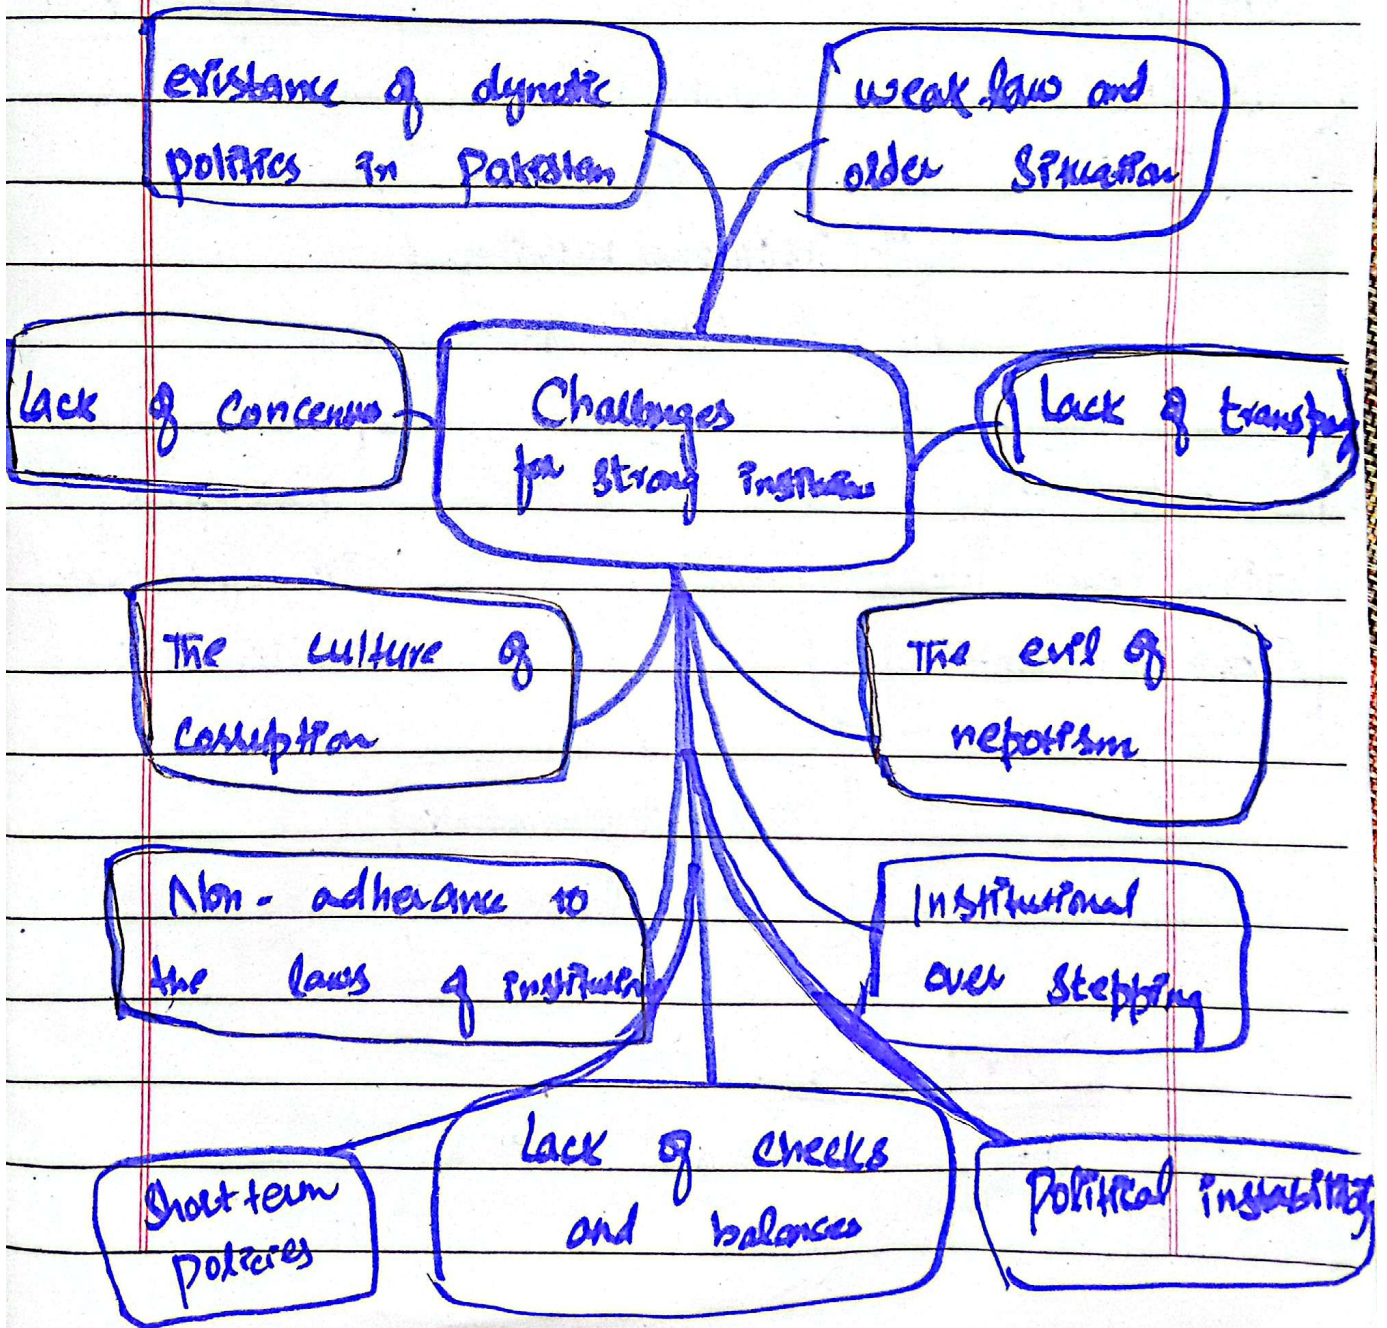 existance of dynetic
politics in Pakistan
weak law and
older Situation
Lack of Concensus
Challenges
for strong institution
Lack of transpany
The culture of
corruption
The evil of
nepotism
Non-adherance to
the laws of institution
Institutional
over stepping
Short term
policies
Lack of checks
and balances
Political instability